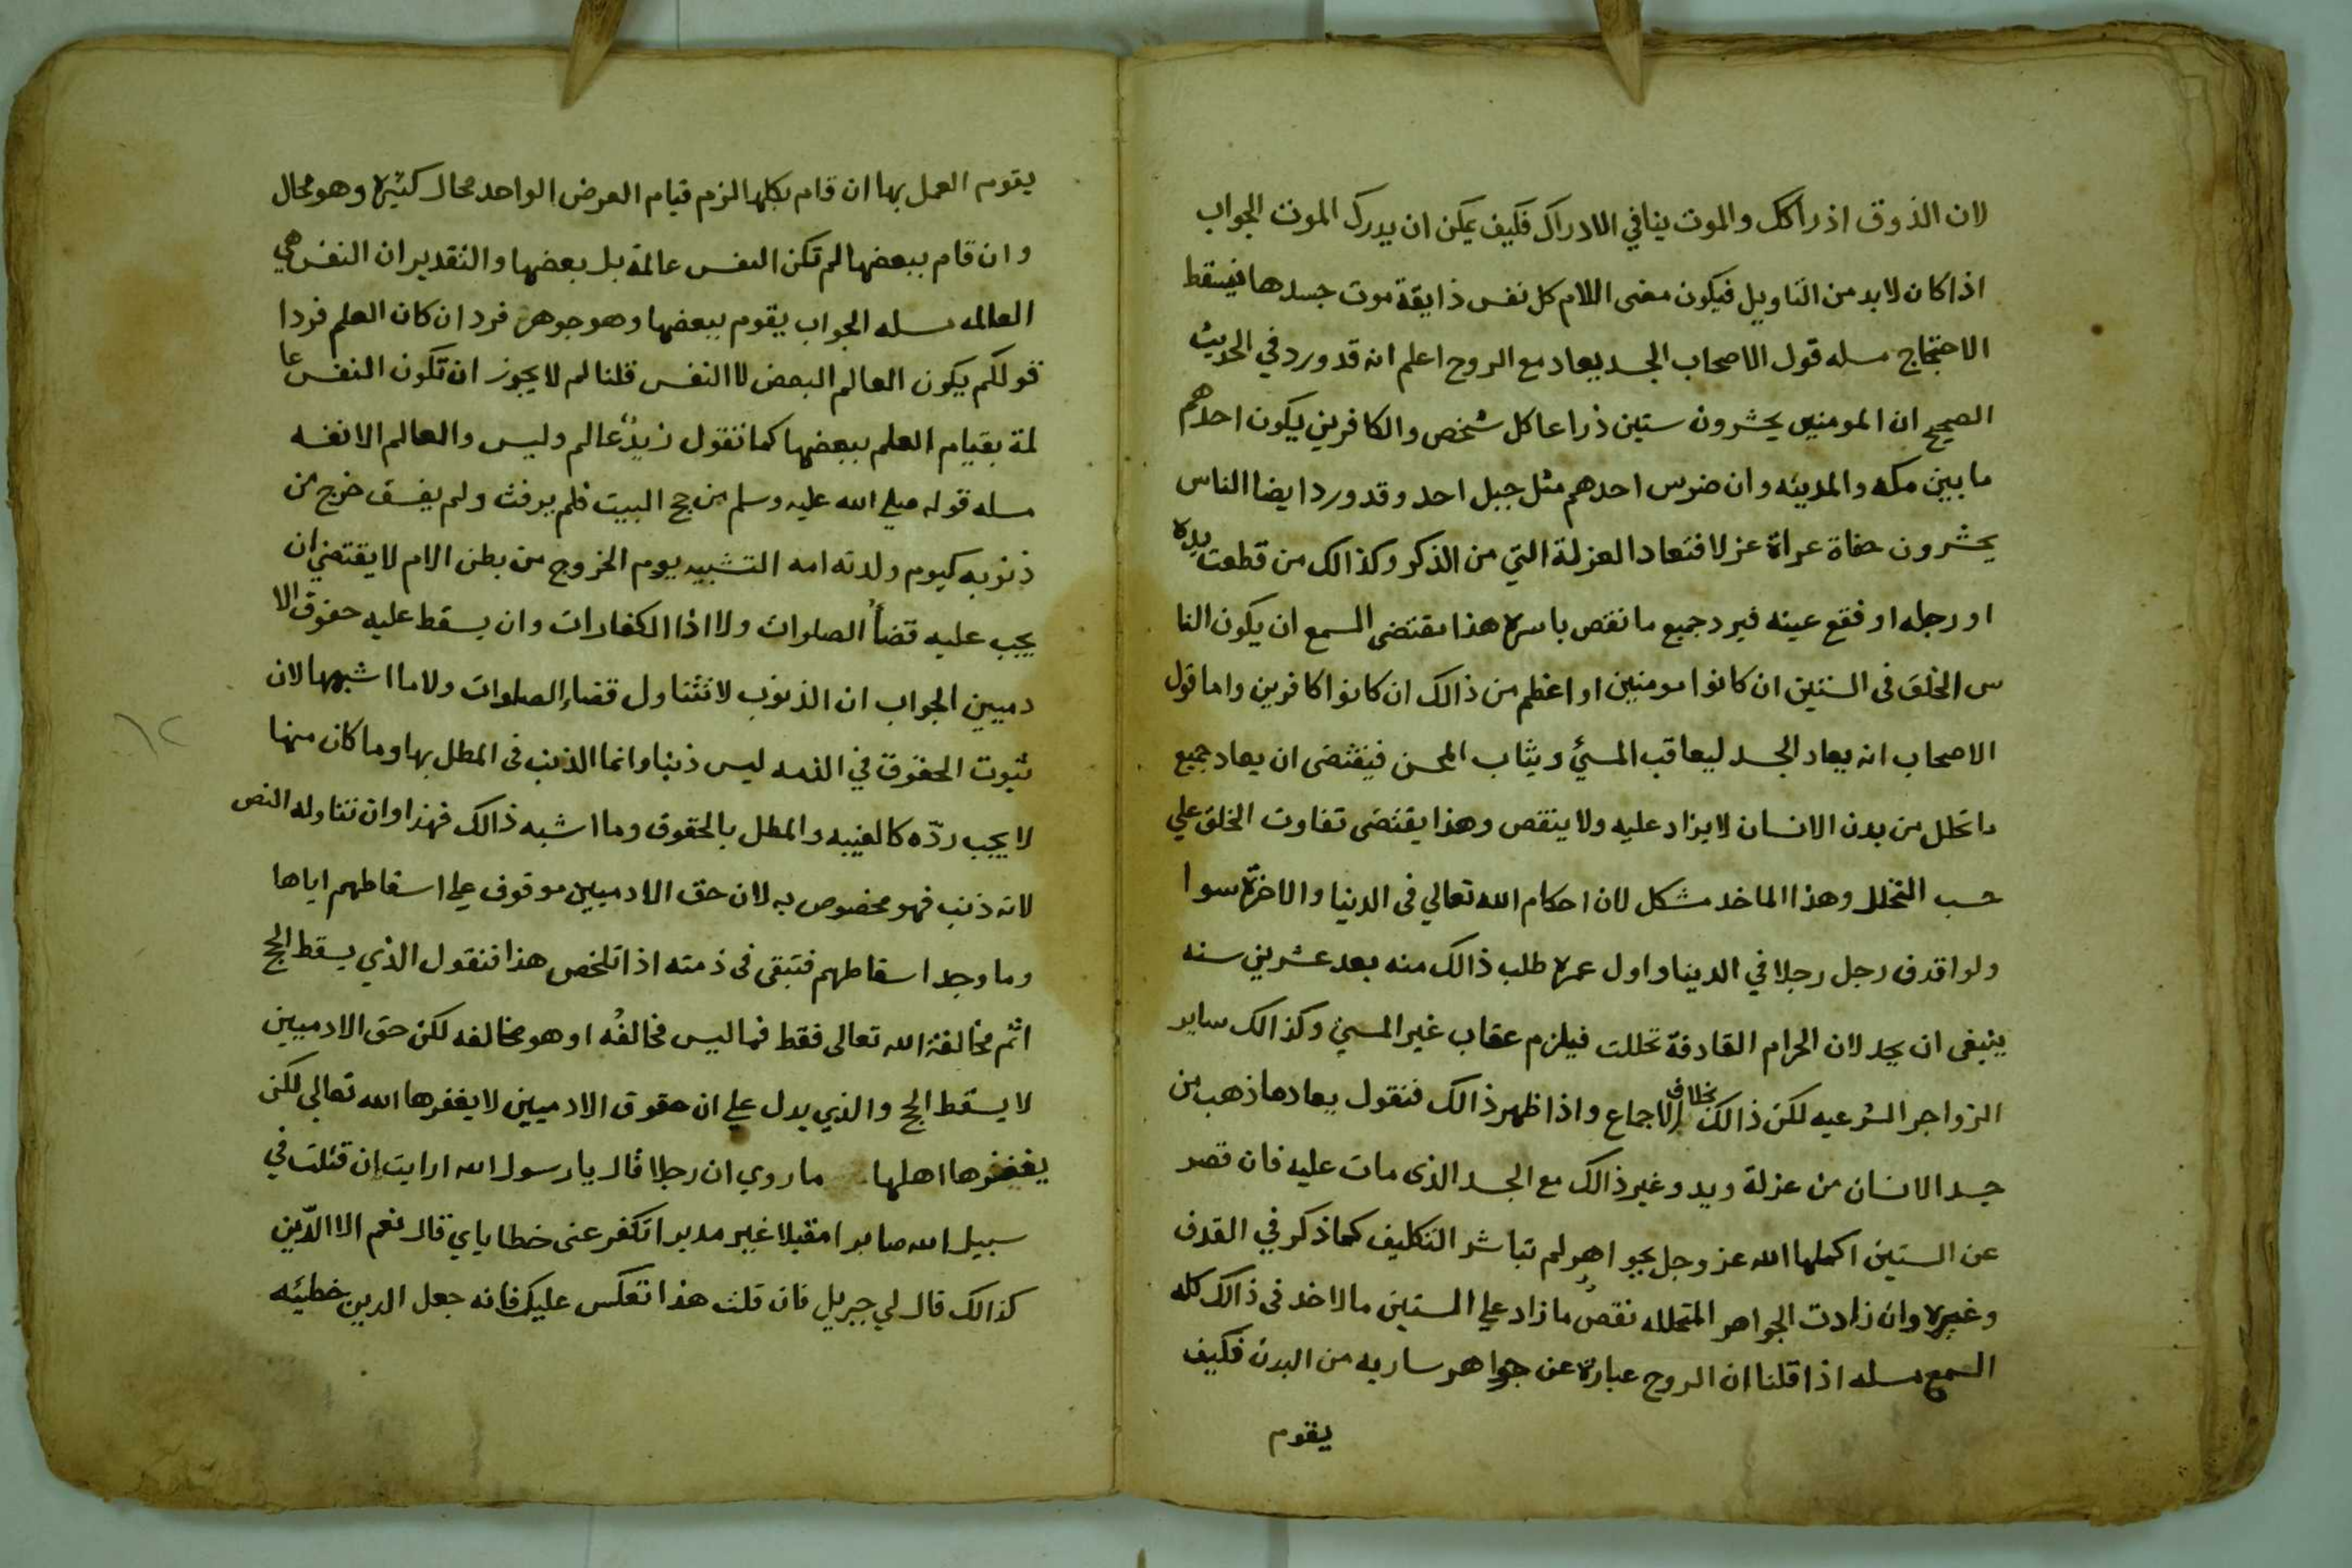 لان الذوق اذراكك والموت ينافي الادراك فكيف يمكن ان يدرك الموت الجواب
اذا كان لابد من التاويل فيكون معنى الكلام كل نفس ذايقة موت جسدها فيسقط
الاحتجاج مسله قول الاصحاب الجسد يعاد مع الروح اعلم انه قد ورد في الحديث
الصحيح ان المومنين يحشرون ستين ذراعا كل شخص والكافرين يكون احدهم
ما بين مكه والمدينه وان ضرس احدهم مثل جبل احد وقد ورد ايضا الناس
يحشرون حفاة عراة عزلا فتعاد العزلة التي من الذكر وكذالك من قطعت يده
او رجله او فقع عينه فيرد جميع ما نقص باسره هذا مقتضى السمع ان يكون النا
س الخلق فى الستين ان كانوا مومنين او اعظم من ذالك ان كانوا كافرين واما قول
الاصحاب انه يعاد الجسد ليعاقب المسئ ويثاب المحسن فيقتضى ان يعاد جميع
ما تحلل من بدن الانسان لا يزاد عليه ولا ينقص وهذا يقتضى تفاوت الخلق علي
حسب التحلل وهذا الماخد مشكل لان احكام الله تعالي فى الدنيا والاخرة سوا
ولو اقدف رجل رجلا في الدينا واول عمره طلب ذالك منه بعد عشرين سنه
ينبغى ان يحد لان الحرام القادفة تحللت فيلزم عقاب غير المسئ وكذالك ساير
الزواجر الشرعيه لكن ذالك بخلاف الاجماع واذا ظهر ذالك فنقول يعاد ما ذهب من
جسد الانسان من عزلة ويد وغير ذالك مع الجسد الذى مات عليه فان قصر
عن الستين اكملها الله عز وجل بجواهر لم تباشر التكليف كما ذكر في القدف
وغيره وان زادت الجواهر المتحلله نقص ما زاد علي الستين مالاخد فى ذالك كله
السمع مسله اذا قلنا ان الروح عبارة عن جواهر ساريه من البدن فكيف
يقوم
يقوم العمل بها ان قام بكلها لزم قيام العرض الواحد محال كثيره وهو محال
وان قام ببعضها لم تكن النفس عالمة بل بعضها والتقدير ان النفس هي
العالمه مسله الجواب يقوم ببعضها وهو جوهر فرد ان كان العلم فردا
قولكم يكون العالم البعض لا النفس قلنا لم لا يجوز ان تكون النفس عا
لمة بقيام العلم ببعضها كما تقول زيدٌ عالم وليس والعالم الا نفسه
مسله قوله صلي الله عليه وسلم من حج البيت فلم يرفث ولم يفسق خرج من
ذنوبه كيوم ولدته امه التشبيه بيوم الخروج من بطن الام لا يقتضي ان
يجب عليه قضأ الصلوات ولا اذا الكفارات وان يسقط عليه حقوق الا
دميين الجواب ان الذنوب لا تتناول قضاء الصلوات ولا ما اشبهها لان
ثبوت الحقوق في الذمه ليس ذنبا وانما الذنب فى المطل بها وما كان منها
لا يجب ردّه كالغيبه والمطل بالحقوق وما اشبه ذالك فهذا وان تتناوله النص
لانه ذنب فهو مخصوص به لان حق الادميين موقوف علي اسقاطهم اياها
وما وجد اسقاطهم فتبقى فى ذمته اذا تلخص هذا فنقول الذي يسقط الحج
اثم مخالفة الله تعالى فقط فما ليس مخالفُه او هو مخالفه لكن حق الادميين
لا يسقط الحج والذي يدل علي ان حقوق الادميين لا يغفرها الله تعالي لكن
يغفرها اهلها ما روي ان رجلا قال يا رسول الله ارايت ان قتلت في
سبيل الله صابرا مقبلا غير مدبر اتكفر عنى خطاياي قال نعم الا الدّين
كذالك قال لي جبريل فان قلت هذا تعكس عليك فانه جعل الدين خطيئه
١٢